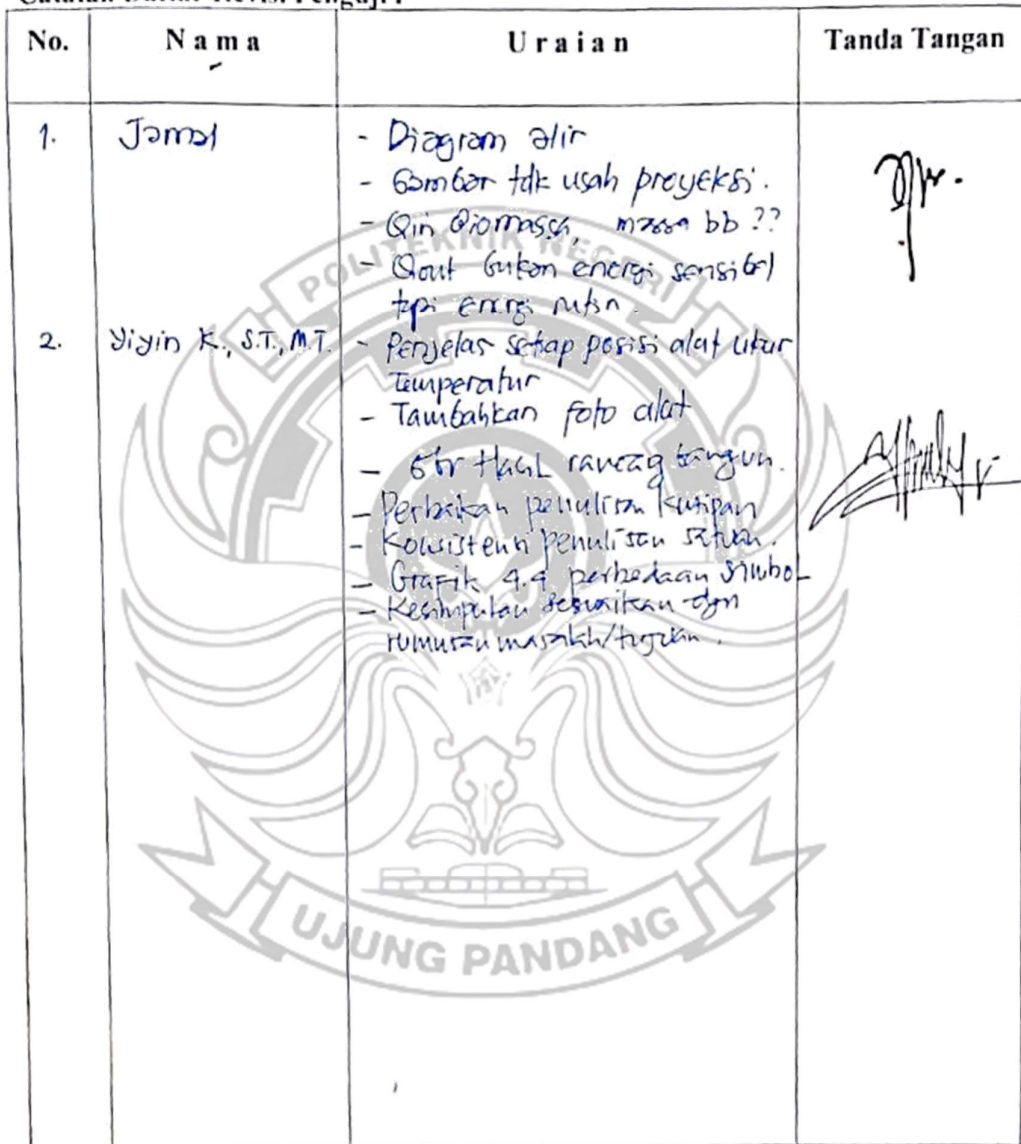 Catatan Daftar Revisi Penguji :
No. Nama Uraian Tanda Tangan
1. Jamal - Diagram alir
- Gambar tdk usah proyeksi.
- Qin Biomassa, massa bb ??
- Qout bukan energi sensibel
tapi energi
2. Yiyin K., S.T., M.T. - Penjelas setiap posisi alat ukur
Temperatur
- Tambahkan foto alat
- Gbr Hasil rancag bangun.
- Perbaikan penulisan kutipan
- Konsistensi penulisan satuan.
- Grafik 4.4 perbedaan simbol
- Kesimpulan sesuaikan dgn
rumusan masalah/tujuan.
POLITEKNIK NEGERI
UJUNG PANDANG